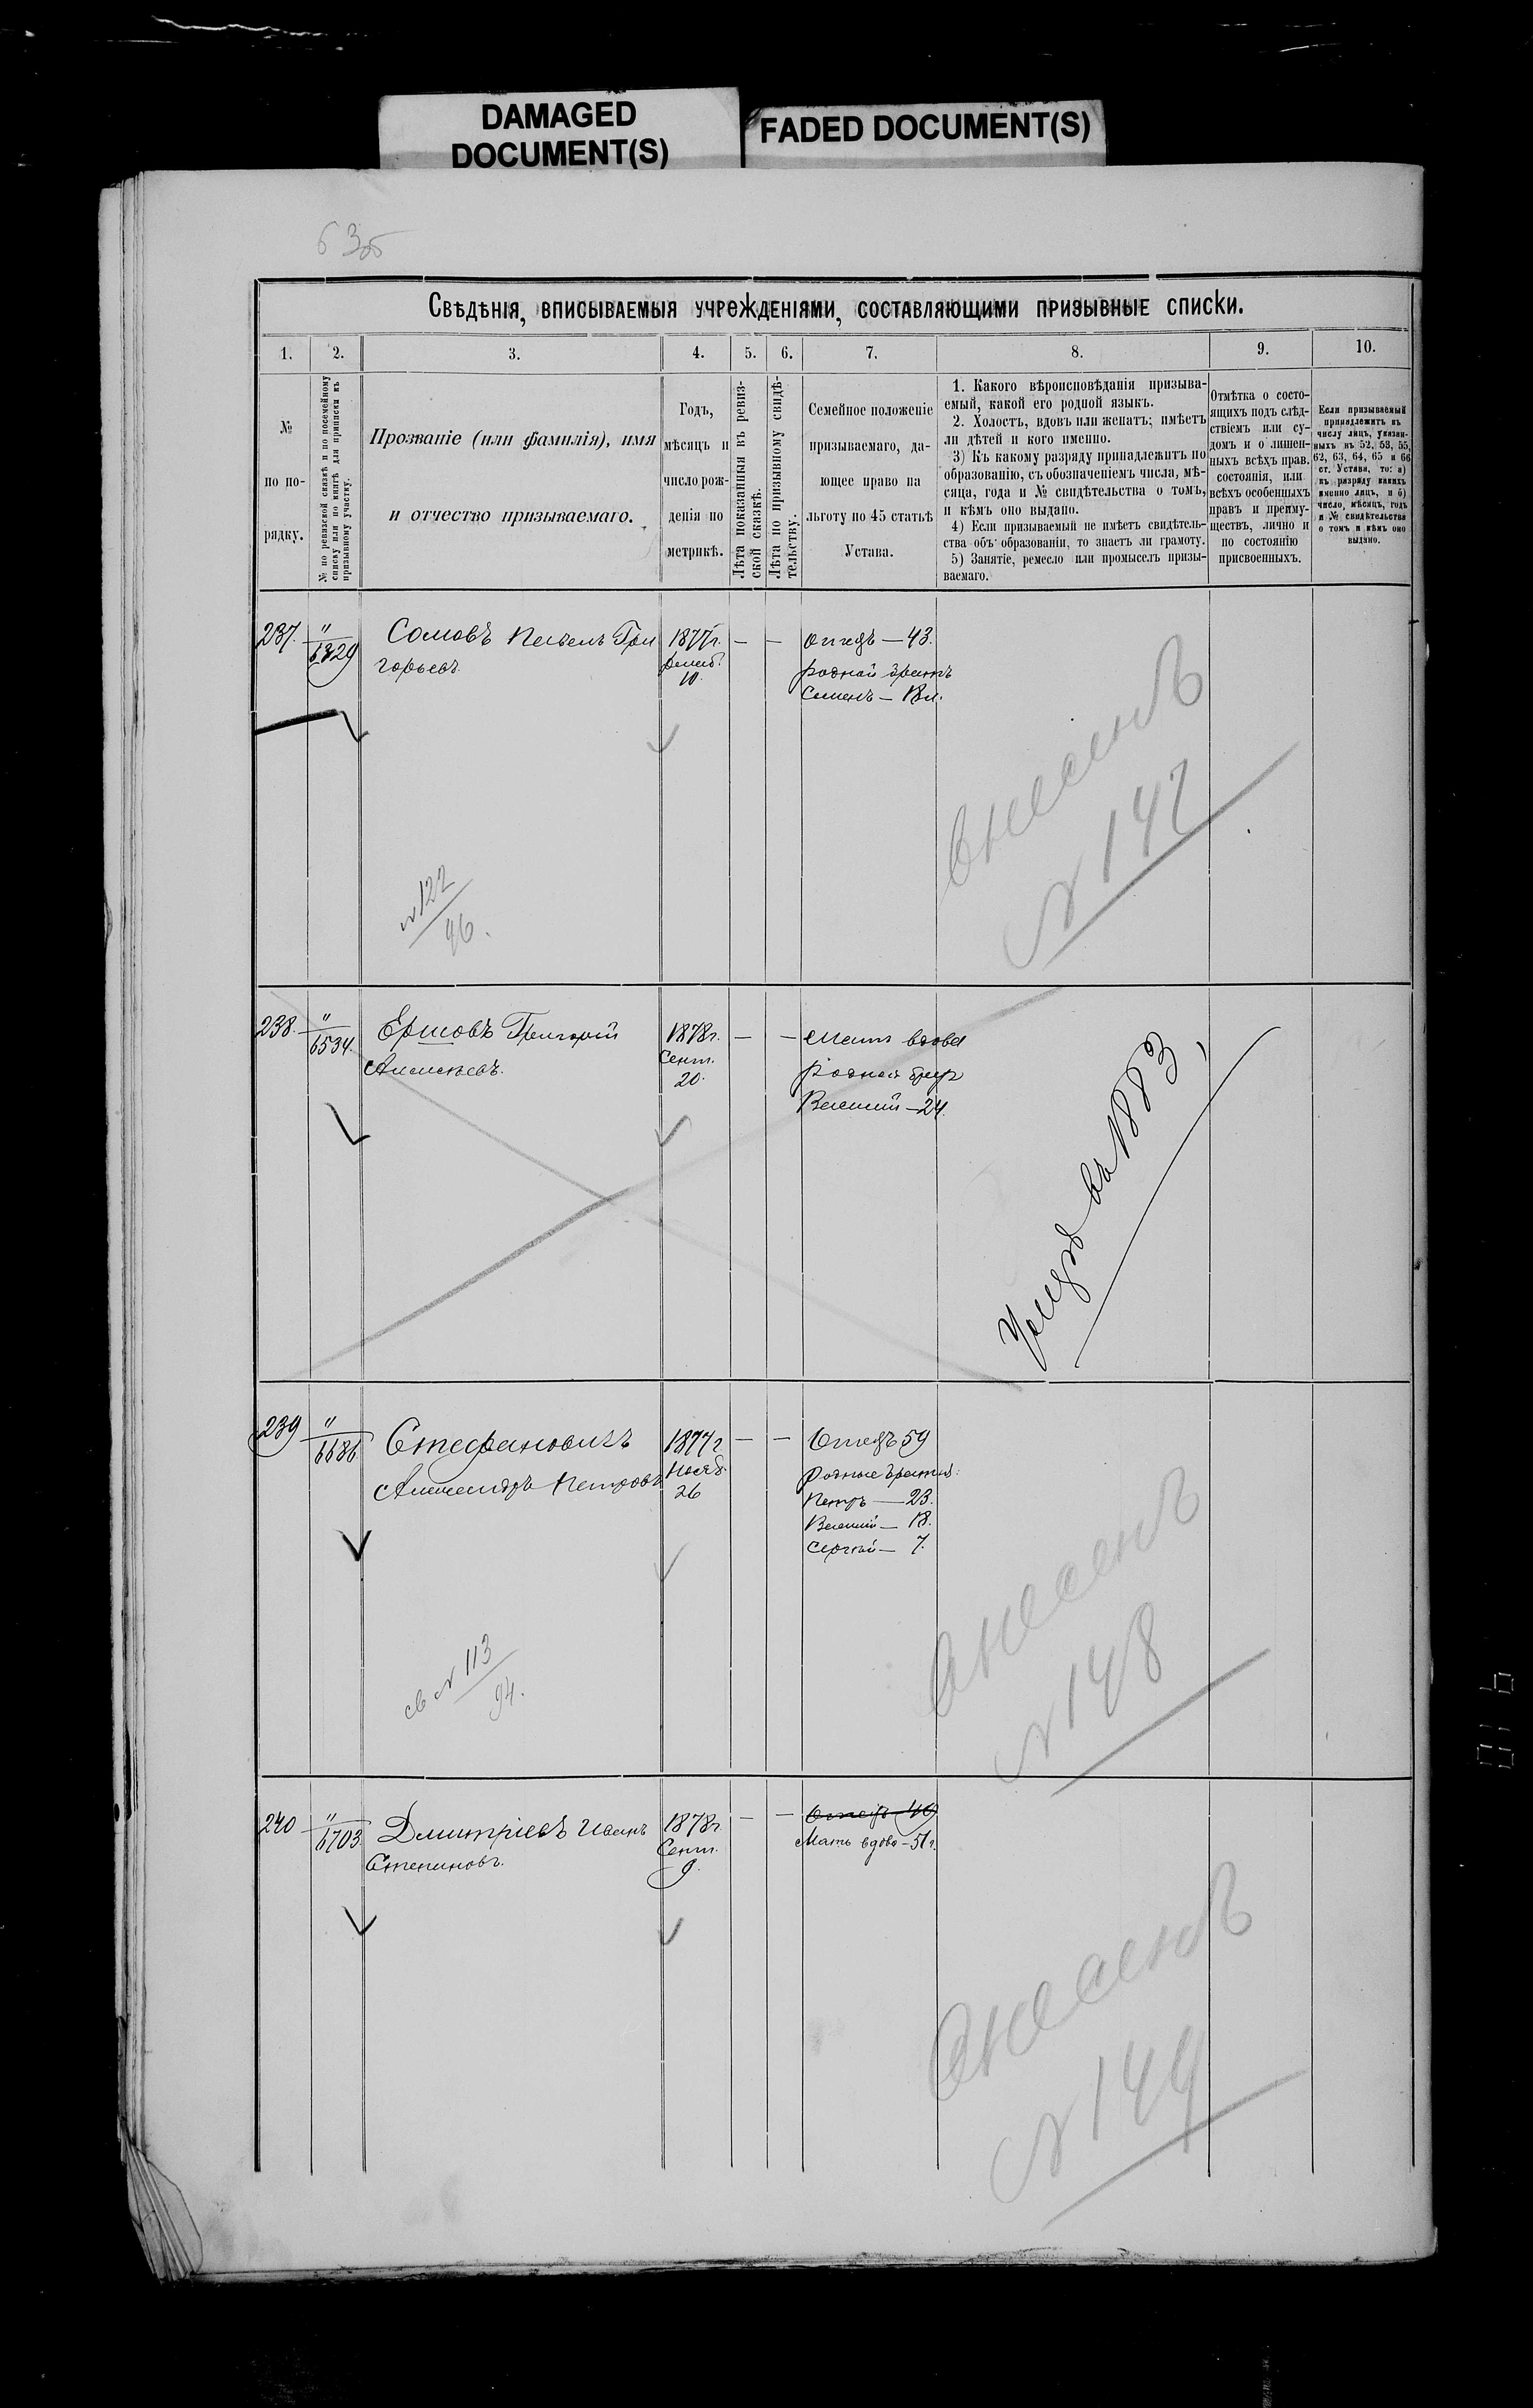 DAMAGED
DOCUMENT(S)
FADED DOCUMENT(S)
63об
Свѣдѣнія, вписываемыя учрежденіями, составляющими призывные списки.
1. 2. 3. 4. 5. 6. 7. 8. 9. 10.
№
по по-
рядку.
№ по ревизской сказкѣ и по посемейному
списку или по книгѣ для приписки къ
призывному участку.
Прозваніе (или фамилія), имя
и отчество призываемаго.
Годъ,
мѣсяцъ и
число рож-
денія по
метрикѣ.
Лѣта показанныя въ ревиз-
ской сказкѣ.
Лѣта по призывному свидѣ-
тельству.
Семейное положеніе
призываемаго, да-
ющее право на
льготу по 45 статьѣ
Устава.
1. Какого вѣроисповѣданія призыва-
емый, какой его родной языкъ.
2. Холостъ, вдовъ или женатъ; имѣетъ
ли дѣтей и кого именно.
3) Къ какому разряду принадлежитъ по
образованію, съ обозначеніемъ числа, мѣ-
сяца, года и № свидѣтельства о томъ,
и кѣмъ оно выдано.
4) Если призываемый не имѣетъ свидѣтель-
ства объ образованіи, то знаетъ ли грамоту.
5) Занятіе, ремесло или промыселъ призы-
ваемаго.
Отмѣтка о состо-
ящихъ подъ слѣд-
ствіемъ или су-
домъ и о лишен-
ныхъ всѣхъ прав.
состоянія, или
всѣхъ особенныхъ
правъ и преиму-
ществъ, лично и
по состоянію
присвоенныхъ.
Если призываемый
принадлежитъ къ
числу лицъ, указан-
ныхъ въ 52, 53, 55,
62, 63, 64, 65 и 66
ст. Устава, то: а)
къ разряду какихъ
именно лицъ, и б)
число, мѣсяцъ, годъ
и № свидѣтельства
о томъ и кѣмъ оно
выдано.
237. "
6329
Сомовъ Павелъ Гри
горьевъ
1877г.
10.
— —
Отецъ — 43.
родной братъ
Семенъ — 13л.
внесенъ
№ 142
№122
96.
238. "
6534.
Ершовъ Григорій
Алексѣевъ.
1878г.
Сент.
20.
— —
Мать вдова
родной братъ
Василій — 24.
Умеръ въ 1883,
239 "
6686
Стефановичъ
Александръ Петровъ
1877г
Нояб.
26
— —
Отецъ 59
родные братья:
Петръ — 23.
Василій — 18.
Сергѣй — 7.
внесенъ
№ 148
св № 113
94.
240 "
6703
Дмитріевъ Иванъ
Степановъ.
1878г
Сент.
9.
— —
Отецъ 49
Мать вдова — 51г.
внесенъ
№ 149